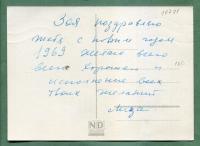 Зоя поздравляю
тебя с новым годом
1969 желаю всего
всего хорошего и
исполнение всех
твоих желаний
ND